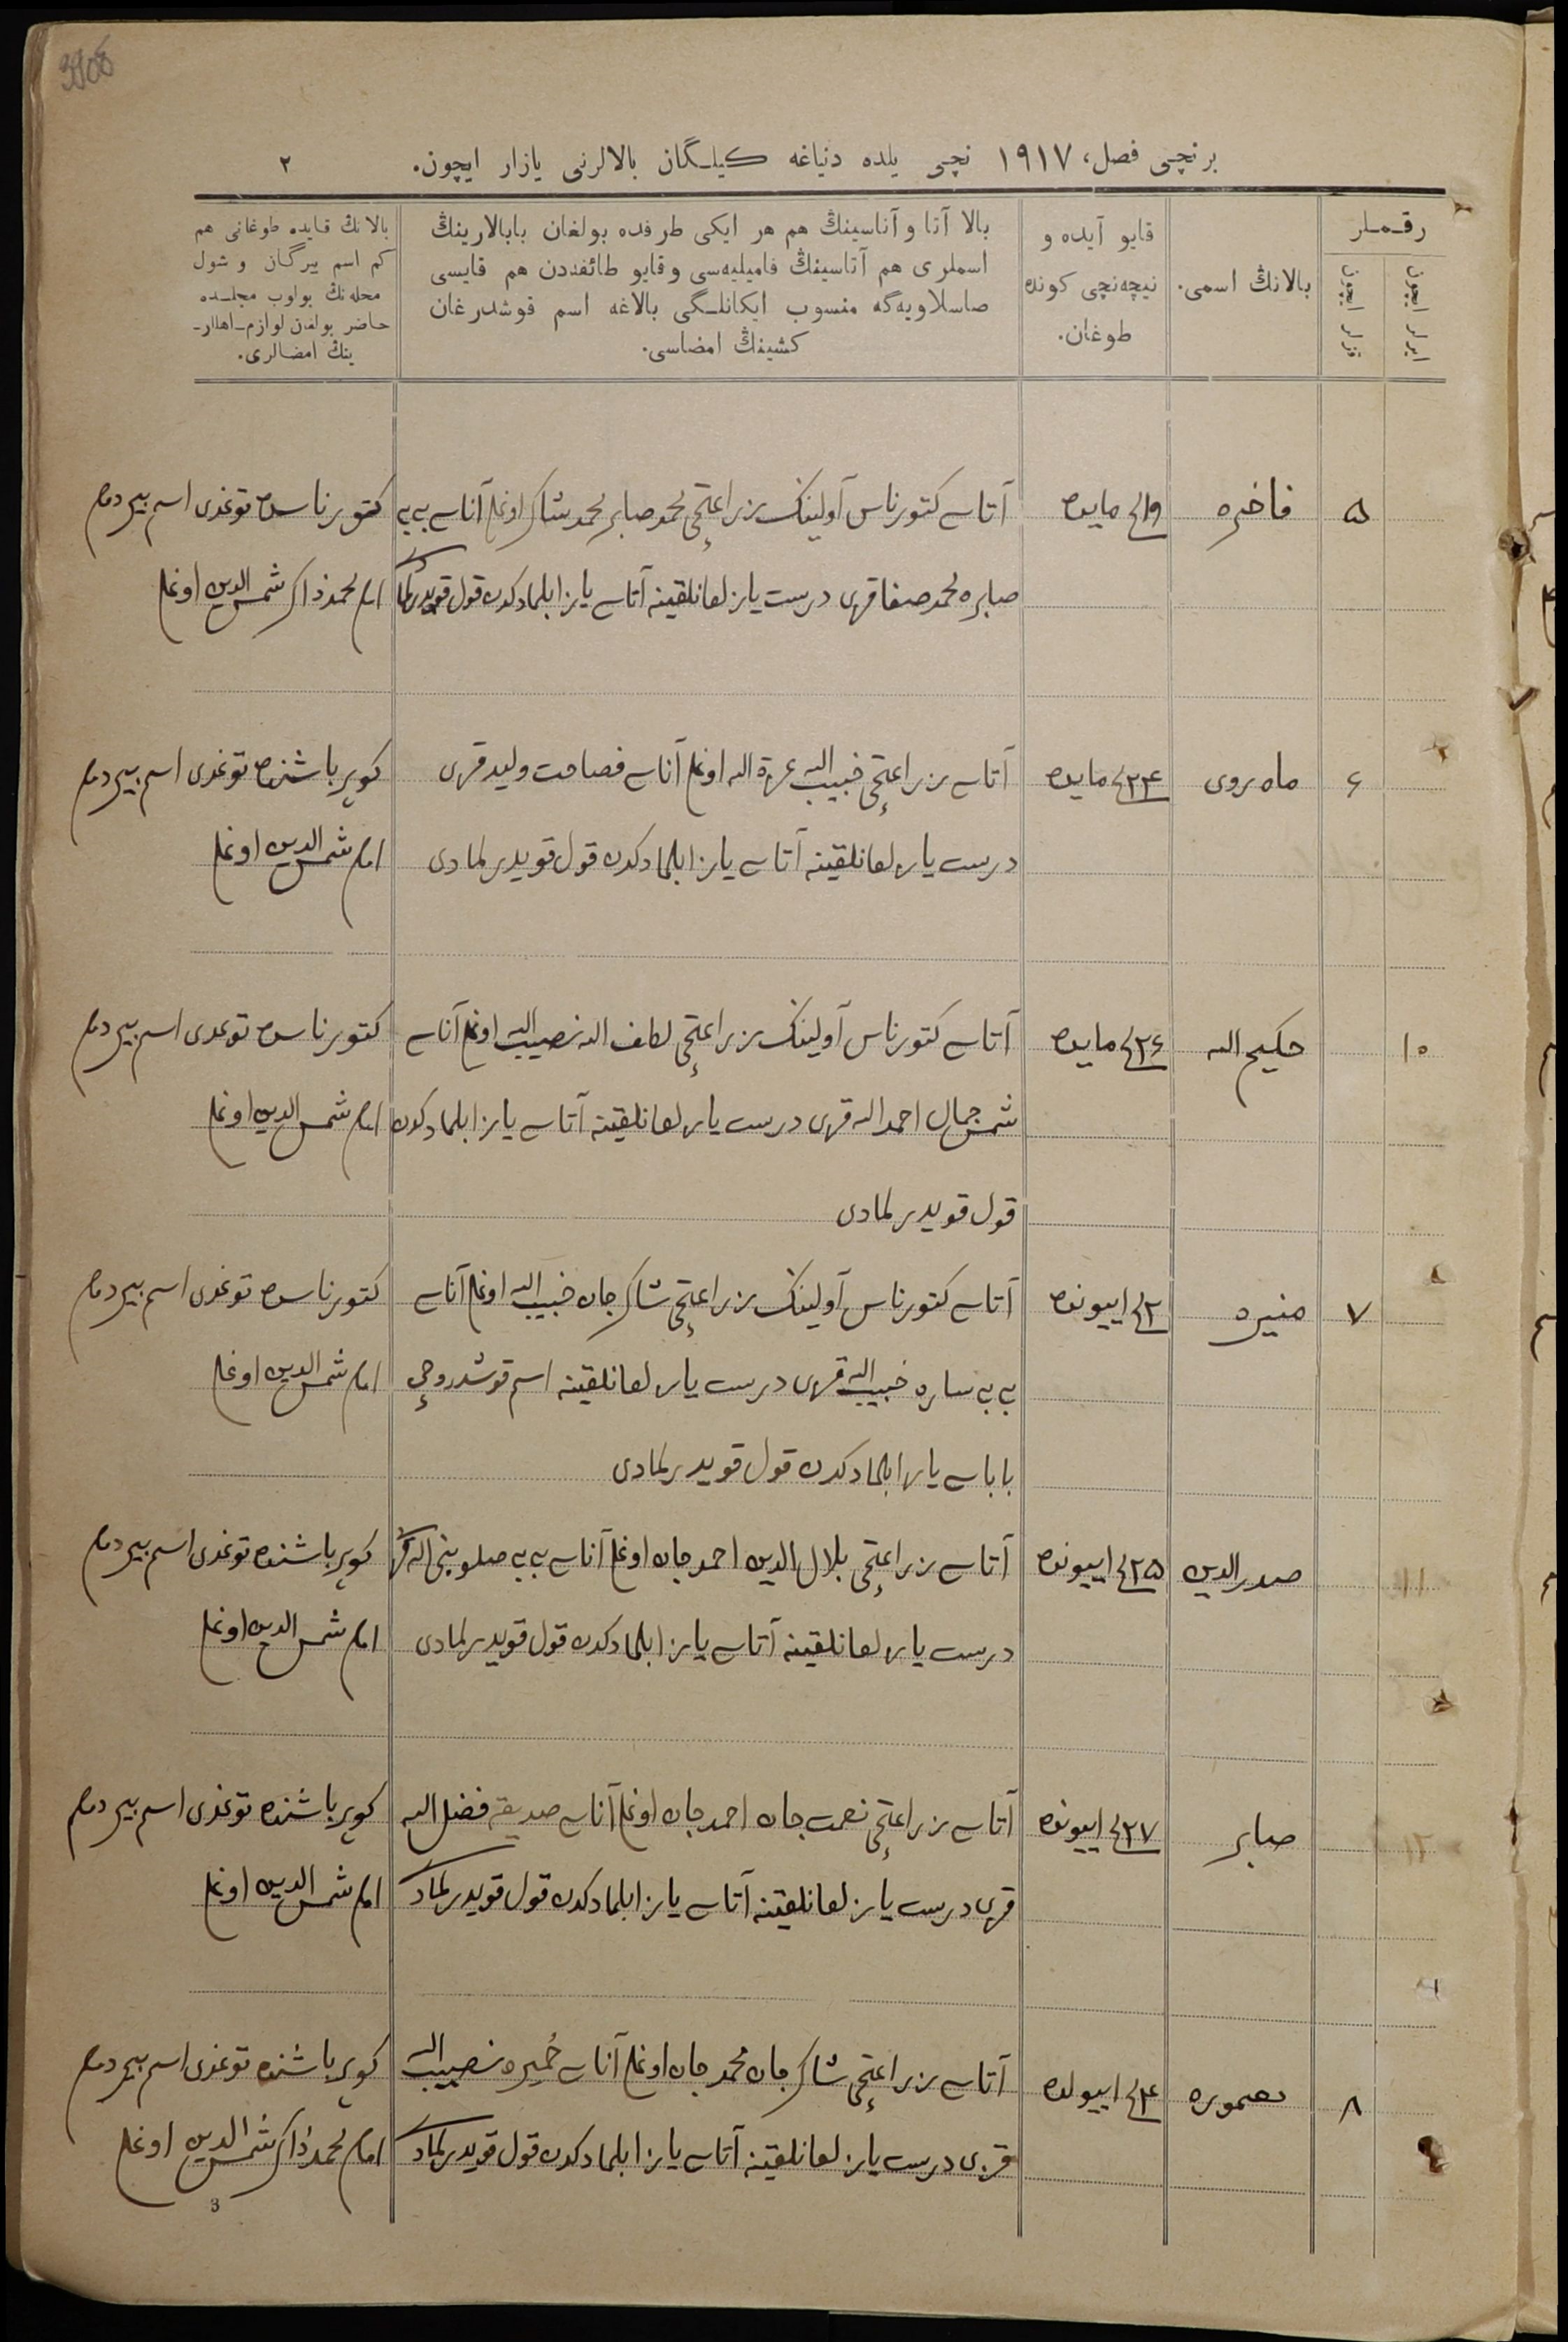 3908
برنچی فصل، ۱۹۱۷ نچی یلده دنیاغه کیلـگان بالالرنی یازار ایچون.
۲
رقـمـلر
ایرلر ایچون
قزلر ایچون
بالانڭ اسمی.
قایو آیده و
نیچه‌نچی کونده
طوغان.
بالا آتا و آناسینڭ هم هر ایکی طرفده بولغان بابالارینڭ
اسملری هم آتاسینڭ فامیلیه‌سی و قایو طائفه‌دن هم قایسی
صاسلاویه‌گه منسوب ایکانلـگی بالاغه اسم قوشدرغان
کشینڭ امضاسی.
بالانڭ قـایده طوغانی هم
کم اسم بیرگـان و شول
محله‌نڭ بولوب مجلـسده
حاضر بولغان لوازم-اهللر-
ینڭ امضالری.
۵
فاخره
۱۹ی مایده
آتاسی کتورناس آولینڭ زراعتچی محمد صابر محمد شاکر اوغلی آناسی بی بی
صابره محمد صفا قزی درست یازلغانلقینه آتاسی یازا بلمادکدن قول قویدرلمادی
کتورناسده توغدی اسم بیردم
امام محمد ذاکر شمس الدین اوغلی
۶
ماه روی
۲۴ی مایده
آتاسی زراعتچی خبیب الله عزة الله اوغلی آناسی فصاحت ولید قزی
درست یازلغانلقینه آتاسی یازا بلمادکدن قول قویدرلمادی
کوپرباشنده توغدی اسم بیردم
امام شمس الدین اوغلی
۱۰
حکیم الله
۲۶ی مایده
آتاسی کتورناس آولینڭ زراعتچی لطف الله نصیب الله اوغلی آناسی
شمس جمال احمد الله قزی درست یازلغانلقینه آتاسی یازا بلمادکدن
قول قویدرلمادی
کتورناسده توغدی اسم بیردم
امام شمس الدین اوغلی
۷
منیره
۲ی اییونده
آتاسی کتورناس آولینڭ زراعتچی شاکر جان خبیب الله اوغلی آناسی
بی بی ساره خبیب الله قزی درست یازلغانلقینه اسم قوشدروچی
باباسی یازا بلمادکدن قول قویدرلمادی
کتورناسده توغدی اسم بیردم
امام شمس الدین اوغلی
۱۱
صدرالدین
۲۵ی اییونده
آتاسی زراعتچی بلال الدین احمد جان اوغلی آناسی بی بی
درست یازلغانلقینه آتاسی یازا بلمادکدن قول قویدرلمادی
کوپرباشنده توغدی اسم بیردم
امام شمس الدین اوغلی
۱۲
صابر
۲۷ی اییونده
آتاسی زراعتچی نعمت جان احمد جان اوغلی آناسی صدیقه فضل الله
قزی درست یازلغانلقینه آتاسی یازا بلمادکدن قول قویدرلمادی
کوپرباشنده توغدی اسم بیردم
امام شمس الدین اوغلی
۸
معموره
۴ی اییولده
آتاسی زراعتچی شاکر جان محمد جان اوغلی آناسی خمیره نصیب الله
قزی درست یازلغانلقینه آتاسی یازا بلمادکدن قول قویدرلمادی
کوپرباشنده توغدی اسم بیردم
امام محمد ذاکر شمس الدین اوغلی
3